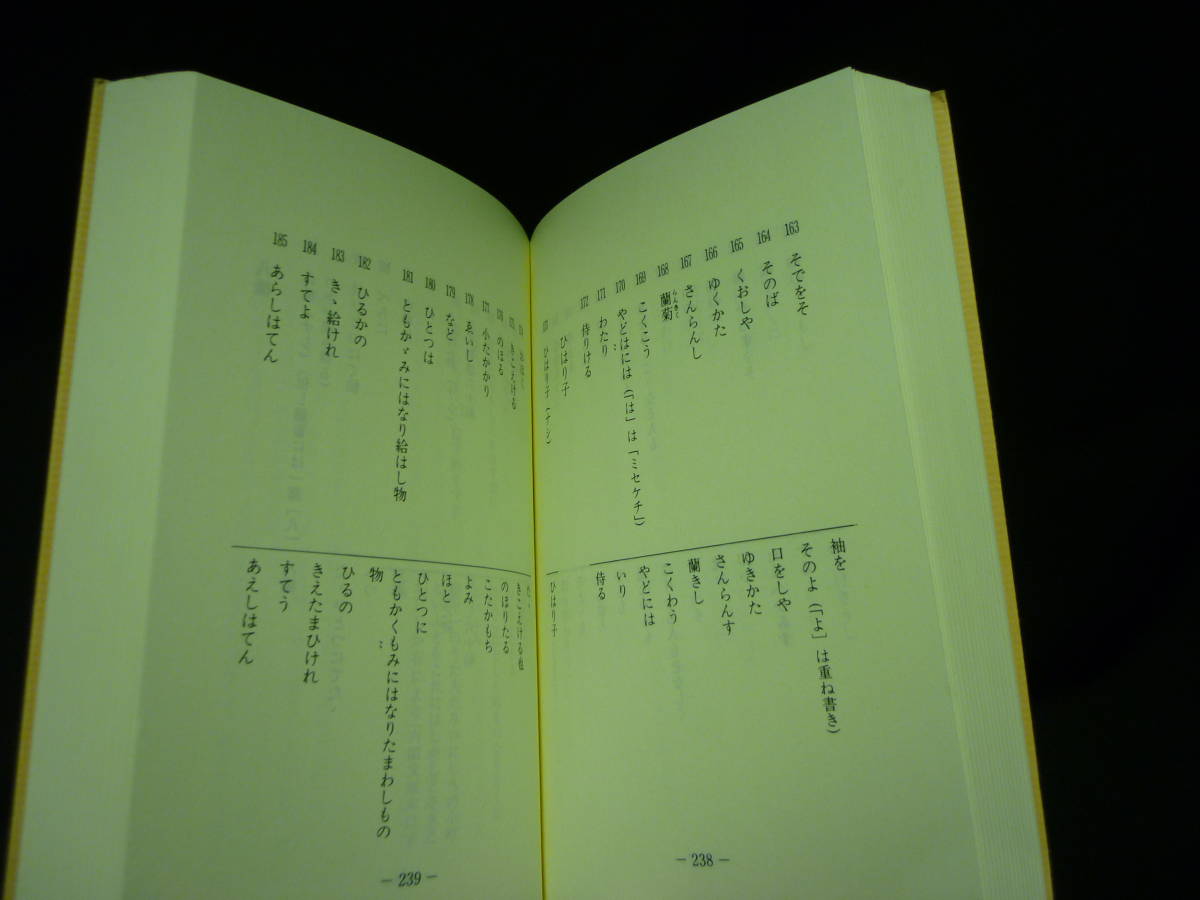 163 そでをそ
164 そのば
165 くおしや
166 ゆくかた
167 さんらんし
168 蘭菊
らんきく
169 こくこう
170 やどはには(「は」は「ミセケチ」)
171 わたり
172 侍りける
ひはり子
袖を
そのよ(「よ」は重ね書き)
口をしや
ゆきかた
さんらんす
蘭きし
こくわう
やどには
いり
侍る
ひはり子
― 238 ―
きこえける
のほる
177 小たかかり
178 ゑいし
179 など
180 ひとつは
181 ともかゞみにはなり給はし物
182 ひるかの
183 きゝ給けれ
184 すてよ
185 あらしはてん
きこえける也
のほりたる
こたかもち
よみ
ほと
ひとつに
ともかくもみにはなりたまわしもの
物
ひるの
きえたまひけれ
すてう
あえしはてん
― 239 ―